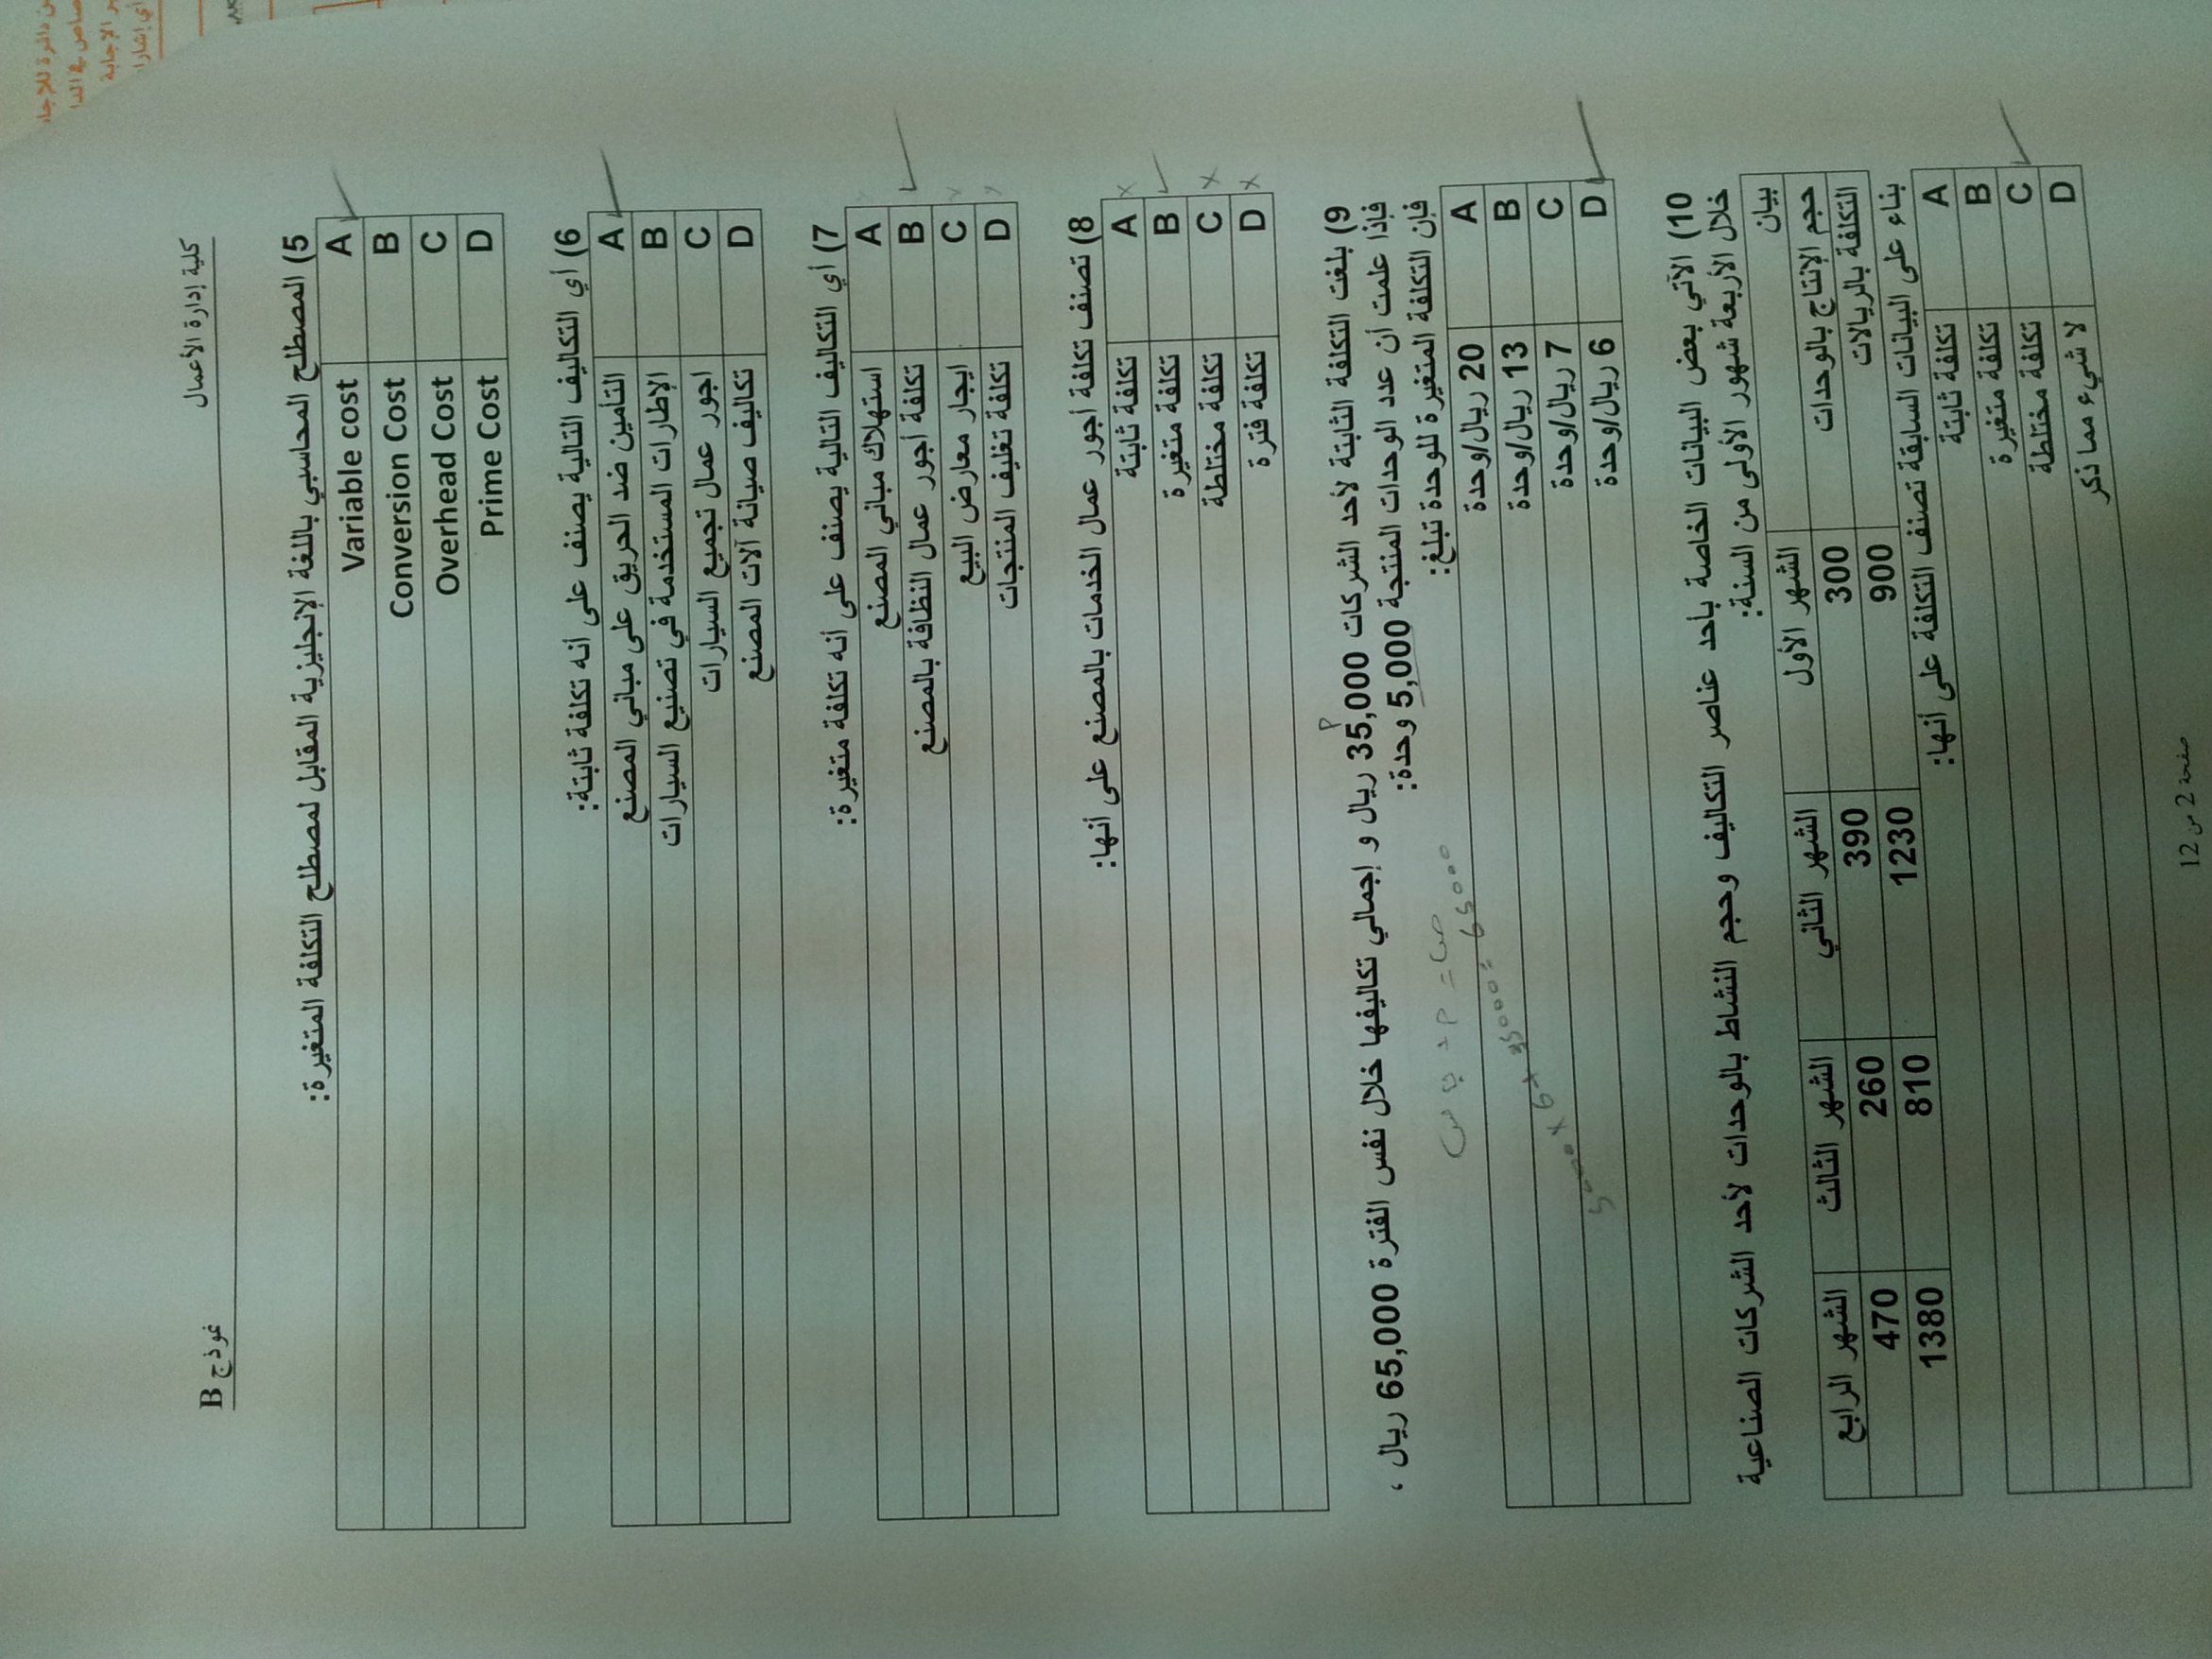 كلية إدارة الأعمال
نموذج B
5) المصطلح المحاسبي باللغة الإنجليزية المقابل لمصطلح التكلفة المتغيرة:
A Variable cost
B Conversion Cost
C Overhead Cost
D Prime Cost
6) أي التكاليف التالية يصنف على أنه تكلفة ثابتة:
A التأمين ضد الحريق على مباني المصنع
B الإطارات المستخدمة في تصنيع السيارات
C اجور عمال تجميع السيارات
D تكاليف صيانة آلات المصنع
7) أي التكاليف التالية يصنف على أنه تكلفة متغيرة:
A استهلاك مباني المصنع
B تكلفة أجور عمال النظافة بالمصنع
C ايجار معارض البيع
D تكلفة تغليف المنتجات
8) تصنف تكلفة أجور عمال الخدمات بالمصنع على أنها:
A تكلفة ثابتة
B تكلفة متغيرة
C تكلفة مختلطة
D تكلفة فترة
9) بلغت التكلفة الثابتة لأحد الشركات 35,000 ريال و إجمالي تكاليفها خلال نفس الفترة 65,000 ريال ،
فإذا علمت أن عدد الوحدات المنتجة 5,000 وحدة:
فإن التكلفة المتغيرة للوحدة تبلغ:
A 20 ريال/وحدة
B 13 ريال/وحدة
C 7 ريال/وحدة
D 6 ريال/وحدة
10) الآتي بعض البيانات الخاصة باحد عناصر التكاليف وحجم النشاط بالوحدات لأحد الشركات الصناعية
خلال الأربعة شهور الأولى من السنة:
بيان الشهر الأول الشهر الثاني الشهر الثالث الشهر الرابع
حجم الإنتاج بالوحدات 300 390 260 470
التكلفة بالريالات 900 1230 810 1380
بناء على البيانات السابقة تصنف التكلفة على أنها:
A تكلفة ثابتة
B تكلفة متغيرة
C تكلفة مختلطة
D لا شيء مما ذكر
صفحة 2 من 12